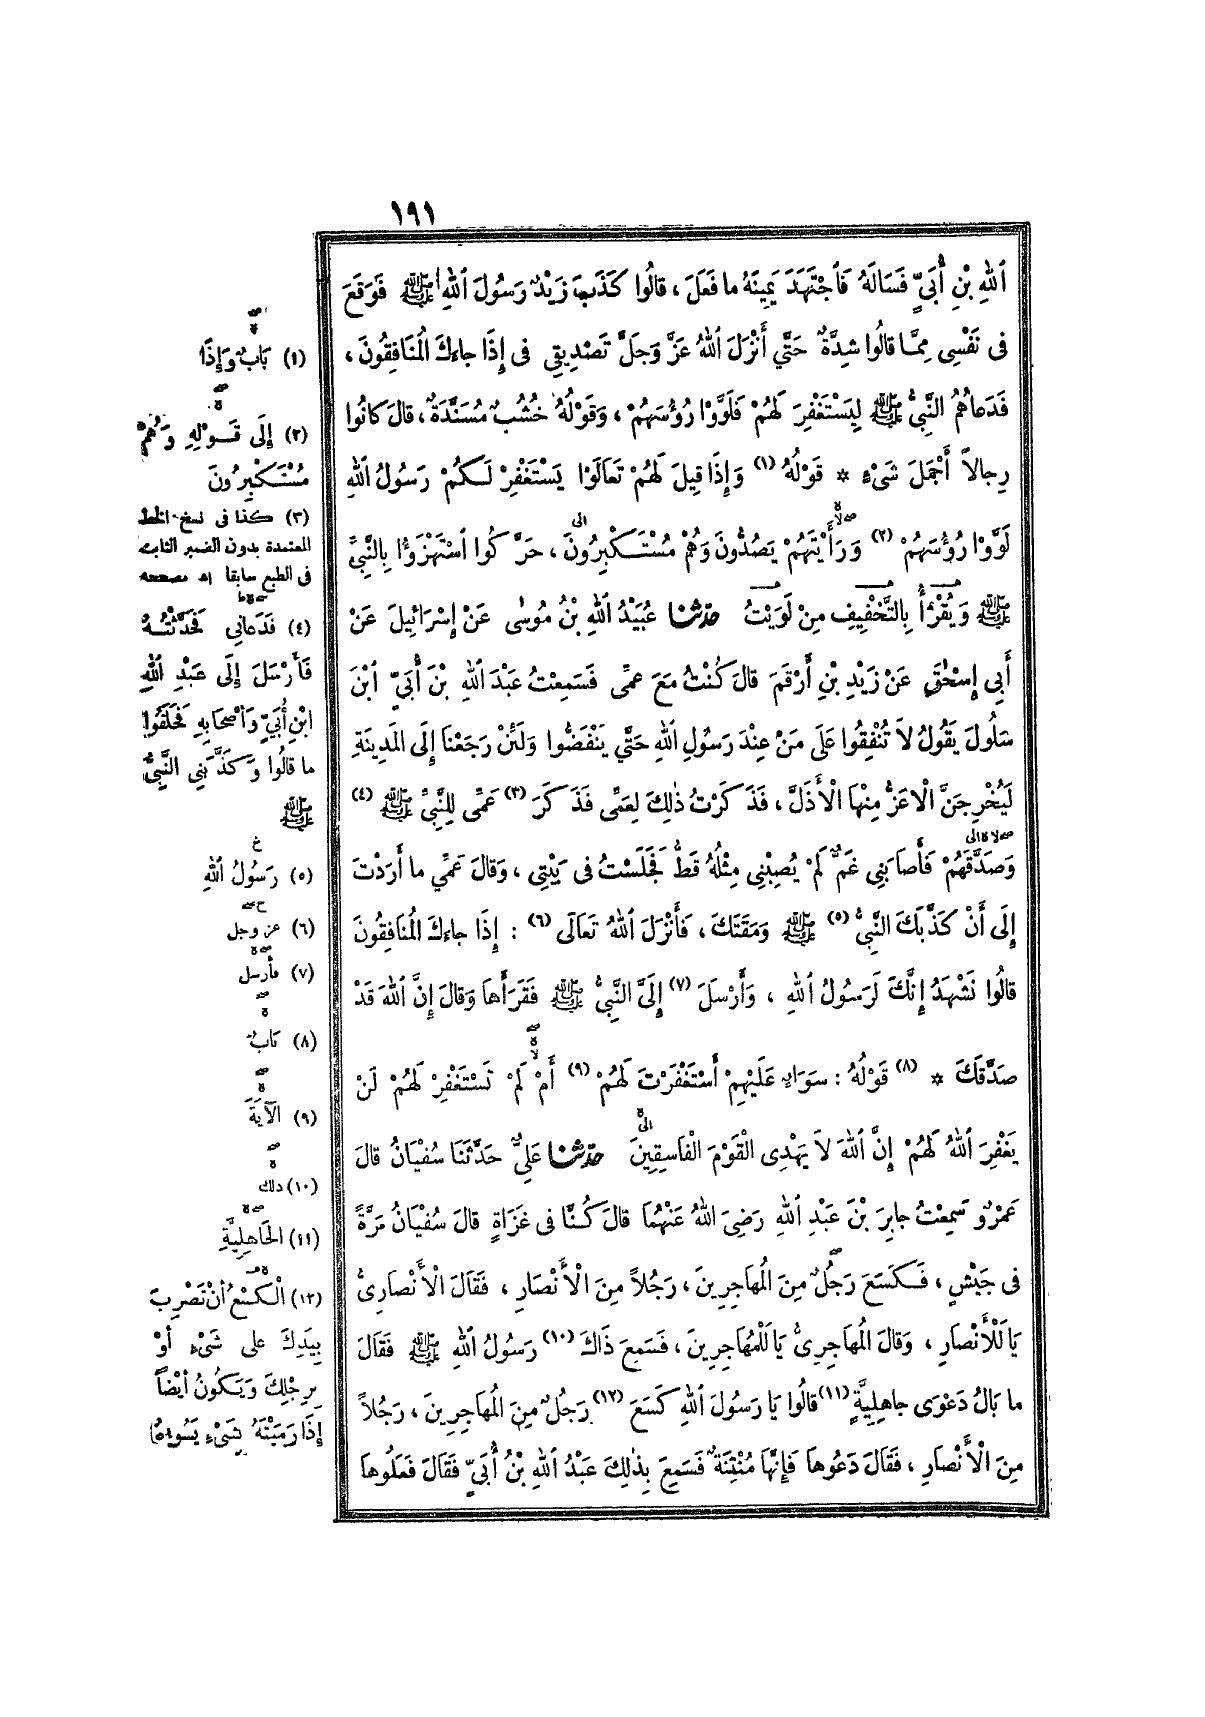 ١٩١
اللهِ بْنِ أُبَيٍّ فَسَالَهُ فَاجْتَهَدَ يَمِينَهُ ما فَعَلَ، قالُوا كَذَبَ زَيْدٌ رَسُولَ اللهِ ﷺ فَوَقَعَ
فى نَفْسِى مِمَّا قالُوا شِدَّةٌ حَتَّى أَنْزَلَ اللهُ عَزَّ وَجَلَّ تَصْدِيقِى فى إِذَا جاءَكَ الْمُنَافِقُونَ،
فَدَعاهُمُ النَّبِىُّ ﷺ لِيَسْتَغْفِرَ لَهُمْ فَلَوَّوْا رُؤُسَهُمْ، وَقَوْلُهُ خُشُبٌ مُسَنَّدَةٌ، قالَ كانُوا
رِجالاً أَجْمَلَ شَىْءٍ * قَوْلُهُ (١) وَإِذَا قِيلَ لَهُمْ تَعَالَوْا يَسْتَغْفِرْ لَكُمْ رَسُولُ اللهِ
لَوَّوْا رُؤُسَهُمْ (٢) وَرَأَيْتَهُمْ يَصُدُّونَ وَهُمْ مُسْتَكْبِرُونَ، حَرَّكُوا اسْتَهْزَؤُا بِالنَّبِىِّ
ﷺ وَيُقْرَأُ بِالتَّخْفِيفِ مِنْ لَوَيْتُ حَدَّثَنَا عُبَيْدُ اللهِ بْنُ مُوسٰى عَنْ إِسْرَائِيلَ عَنْ
أَبِى إِسْحٰقَ عَنْ زَيْدِ بْنِ أَرْقَمَ قالَ كُنْتُ مَعَ عمِّى فَسَمِعْتُ عَبْدَ اللهِ بْنَ أُبَيٍّ ابْنَ
سَلُولَ يَقُولُ لاَ تُنْفِقُوا عَلَى مَنْ عِنْدَ رَسُولِ اللهِ حَتَّى يَنْفَضُّوا وَلَئِنْ رَجَعْنَا إِلَى الْمَدِينَةِ
لَيُخْرِجَنَّ الْاعَزُّ مِنْهَا الْأَذَلَّ، فَذَكَرْتُ ذٰلِكَ لِعَمِّى فَذَكَرَ (٣) عَمِّى لِلنَّبِىِّ ﷺ (٤)
وَصَدَّقَهُمْ فَأَصَابَنِى غَمٌّ لَمْ يُصِبْنِى مِثْلُهُ قَطُّ فَجَلَسْتُ فى بَيْتِى، وَقالَ عَمِّى ما أَرَدْتَ
إِلَى أَنْ كَذَّبَكَ النَّبِىُّ (٥) ﷺ وَمَقَتَكَ، فَأَنْزَلَ اللهُ تَعَالَى (٦) : إِذَا جاءَكَ الْمُنَافِقُونَ
قالُوا نَشْهَدُ إِنَّكَ لَرَسُولُ اللهِ، وَأَرْسَلَ (٧) إِلَىَّ النَّبِىُّ ﷺ فَقَرَأَها وَقالَ إِنَّ اللهَ قَدْ
صَدَّقَكَ * (٨) قَوْلُهُ : سَوَاءٌ عَلَيْهِمْ أَسْتَغْفَرْتَ لَهُمْ (٩) أَمْ لَمْ تَسْتَغْفِرْ لَهُمْ لَنْ
يَغْفِرَ اللهُ لَهُمْ إِنَّ اللهَ لاَ يَهْدِى الْقَوْمَ الْفَاسِقِينَ حَدَّثَنَا عَلِىٌّ حَدَّثَنَا سُفْيَانُ قالَ
عَمْرٌو سَمِعْتُ جابِرَ بْنَ عَبْدِ اللهِ رَضِىَ اللهُ عَنْهُمَا قالَ كُنَّا فى غَزَاةٍ قالَ سُفْيَانُ مَرَّةً
فى جَيْشٍ، فَكَسَعَ رَجُلٌ مِنَ الْمُهَاجِرِينَ، رَجُلاً مِنَ الْأَنْصَارِ، فَقَالَ الْأَنْصَارِىُّ
يَا لَلْأَنْصَارِ، وَقالَ الْمُهَاجِرِىُّ يَا لَلْمُهَاجِرِينَ، فَسَمِعَ ذَاكَ (١٠) رَسُولُ اللهِ ﷺ فَقَالَ
ما بَالُ دَعْوَى جاهِلِيَّةٍ (١١) قالُوا يَا رَسُولَ اللهِ كَسَعَ (١٢) رَجُلٌ مِنَ الْمُهَاجِرِينَ، رَجُلاً
مِنَ الْأَنْصَارِ، فَقَالَ دَعُوها فَإِنَّهَا مُنْتِنَةٌ فَسَمِعَ بِذٰلِكَ عَبْدُ اللهِ بْنُ أُبَيٍّ فَقَالَ فَعَلُوها
(١) بَابٌ وَإِذَا
(٢) إِلَى قَوْلِهِ وَهُمْ
مُسْتَكْبِرُونَ
(٣) كذا فى نسخ الخط
المعتمدة بدون الضمير الثابت
فى الطبع سابقا اه مصححه
(٤) فَدَعانِى فَحَدَّثْتُهُ
فَأَرْسَلَ إِلَى عَبْدِ اللهِ
ابْنِ أُبَيٍّ وَأَصْحَابِهِ فَحَلَفُوا
ما قالُوا وَكَذَّبَنِى النَّبِىُّ
ﷺ
(٥) رَسُولُ اللهِ
(٦) عز وجل
(٧) فأرسل
(٨) بَابٌ
(٩) الْآيَةَ
(١٠) ذلك
(١١) الْجَاهِلِيَّةِ
(١٢) الْكَسْعُ أَنْ تَضْرِبَ
بِيَدِكَ على شَىْءٍ أَوْ
بِرِجْلِكَ وَيَكُونُ أَيْضاً
إِذَا رَمَيْتَهُ بِشَىْءٍ يَسُوءُهُ